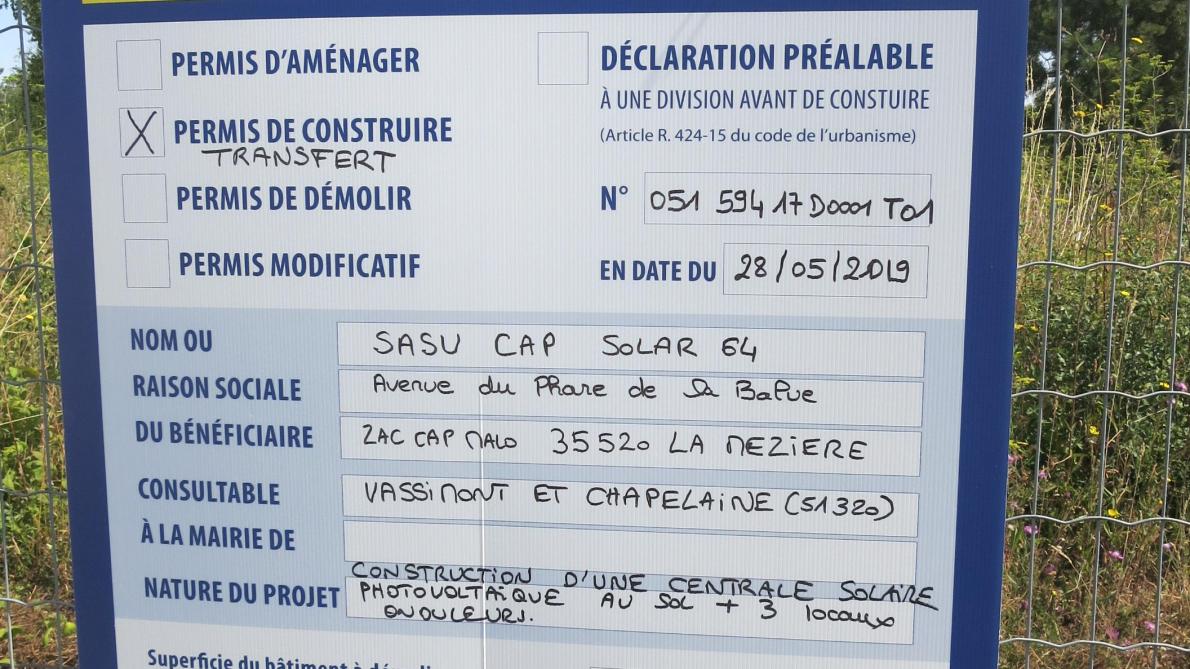 PERMIS D'AMÉNAGER
X PERMIS DE CONSTRUIRE
TRANSFERT
PERMIS DE DÉMOLIR
PERMIS MODIFICATIF
DÉCLARATION PRÉALABLE
À UNE DIVISION AVANT DE CONSTUIRE
(Article R. 424-15 du code de l'urbanisme)
N° 051 594 17 D0001 T01
EN DATE DU 28/05/2019
NOM OU SASU CAP SOLAR 64
RAISON SOCIALE Avenue du Phare de la Balue
DU BÉNÉFICIAIRE ZAC CAP MALO 35520 LA MEZIERE
CONSULTABLE VASSIMONT ET CHAPELAINE (51320)
À LA MAIRIE DE
NATURE DU PROJET CONSTRUCTION D'UNE CENTRALE SOLAIRE
PHOTOVOLTAÏQUE AU SOL + 3 locaux
ONDULEURS.
Superficie du bâtiment à